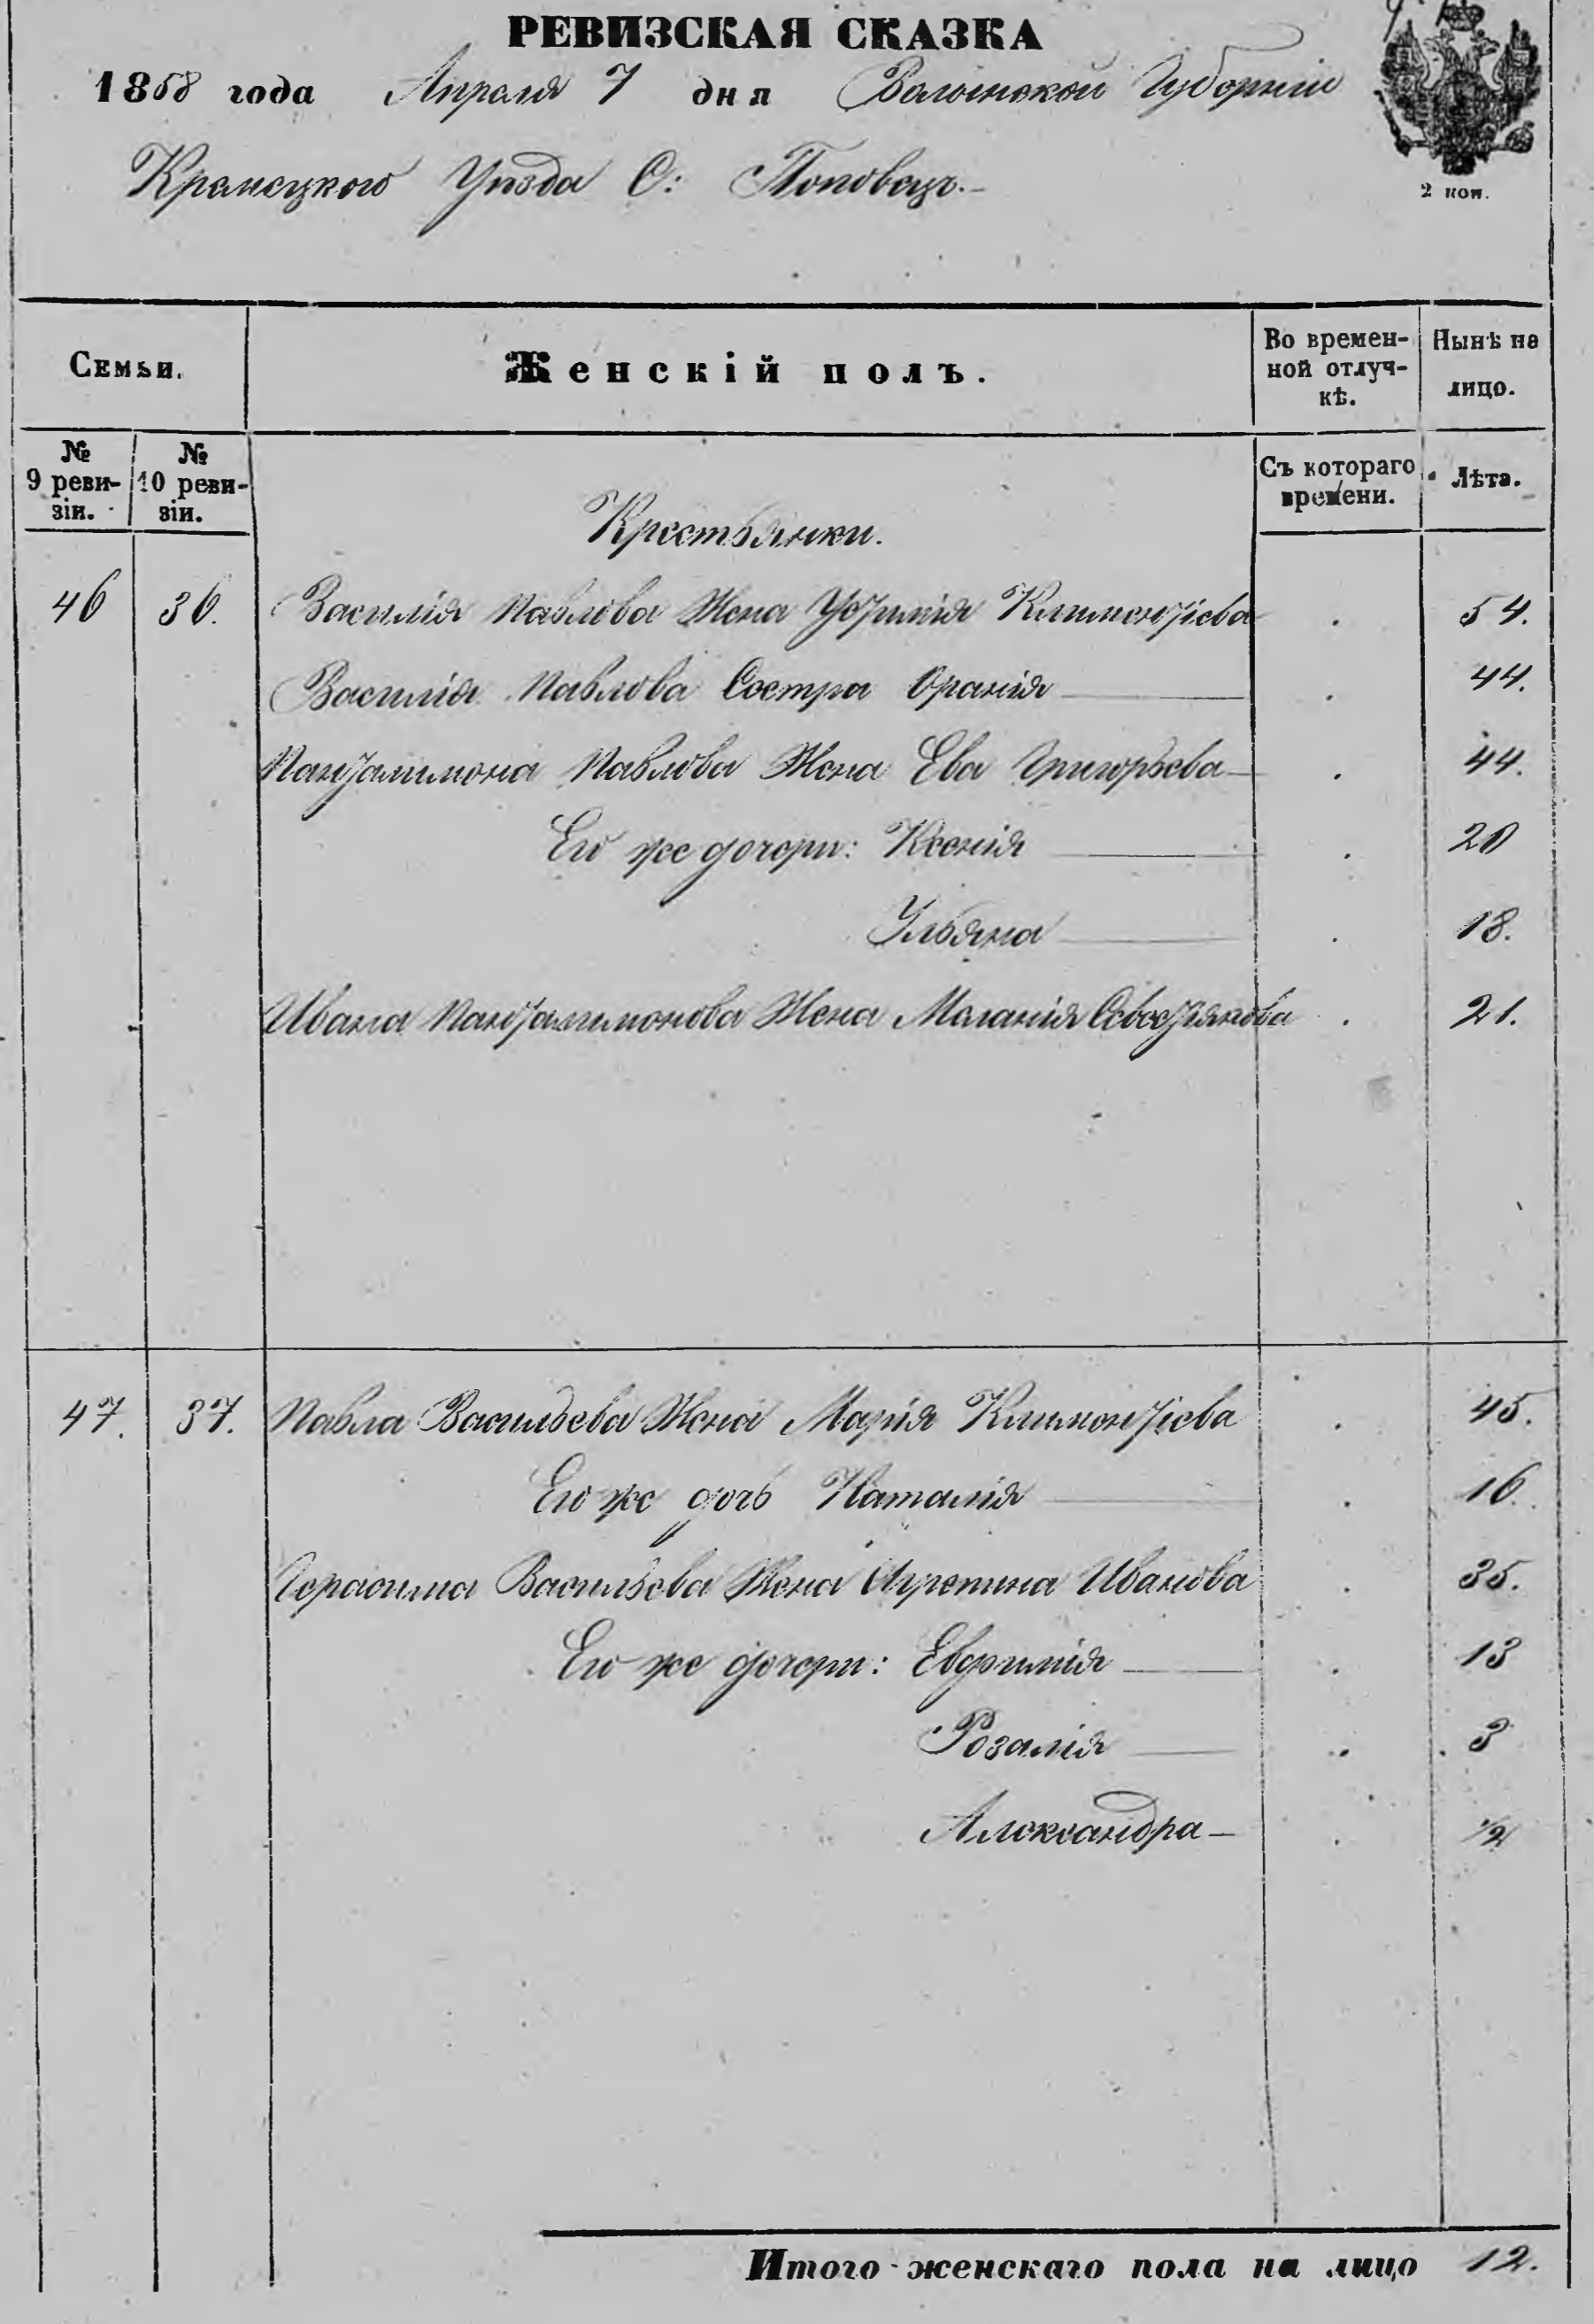 РЕВИЗСКАЯ СКАЗКА
1858 года Апреля 7 дня Волынской Губернiи
Кременецкого Уѣзда С: Поповецъ.-
2 коп.
Семьи.
Женскiй полъ.
Во времен-
ной отлуч-
кѣ.
Нынѣ на
лицо.
№
9 реви-
зiи.
№
10 реви-
зiи.
Съ котораго
времени.
Лѣта.
Крестьянки.
46 36. Василiя Павлова Жена Уфимiя Климентiева . 54.
Василiя Павлова Сестра Оранiя . 44.
Пантилимона Павлова Жена Ева Григорьева . 44.
Его же дочери: Ксенiя . 20
Ульяна . 18.
Ивана Пантилимонова Жена Меланiя Севостiянова . 21.
47. 37. Павла Васильева Жена Марiя Климентiева . 45.
Его же дочь Наталiя . 16.
Герасима Васильева Жена Агрепина Иванова . 35.
Его же дочери: Евфимiя . 13
Розалiя . 3
Александра . 1/2
Итого женскаго пола на лицо 12.